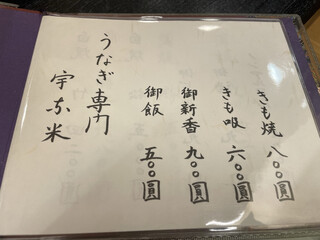 きも焼 八〇〇圓
きも吸 六〇〇圓
御新香 九〇〇圓
御飯 五〇〇圓
うなぎ専門
宇な米